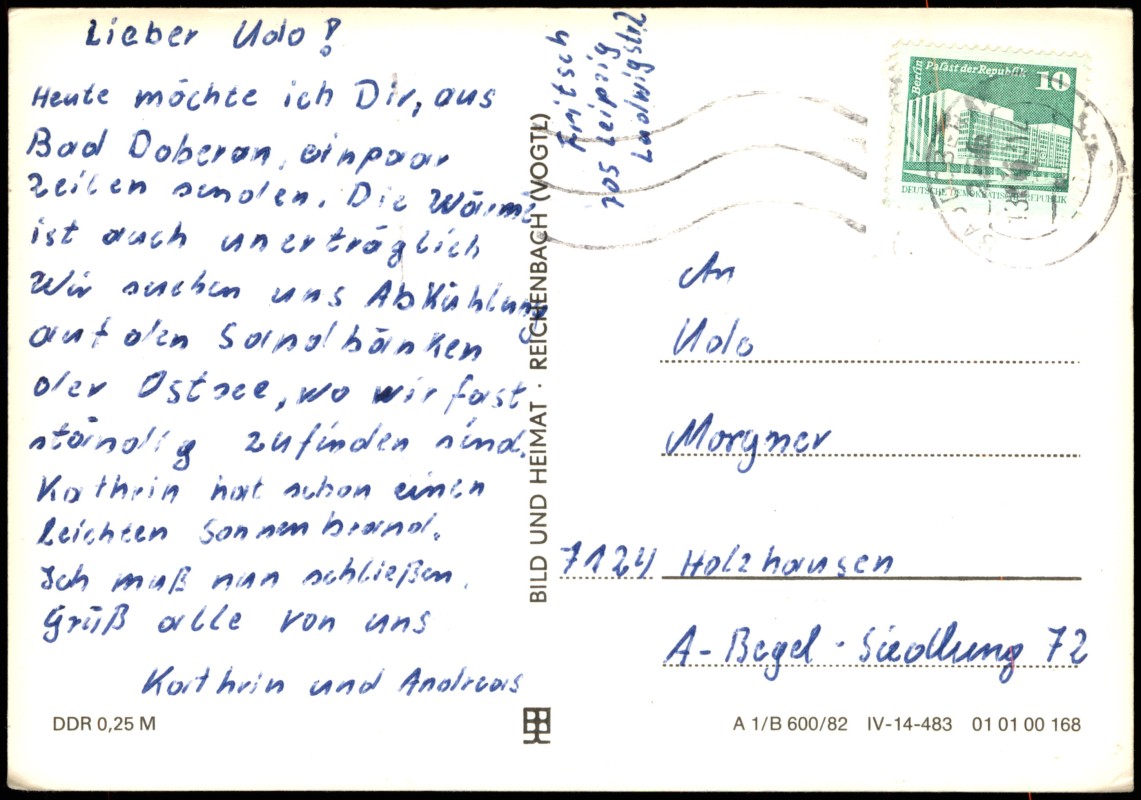 Lieber Udo!
Heute möchte ich Dir, aus
Bad Doberan, einpaar
Zeilen senden. Die Wärme
ist auch unerträglich
Wir suchen uns Abkühlung
auf den Sandbänken
der Ostsee, wo wir fast
ständig zufinden sind.
Kathrin hat schon einen
leichten Sonnenbrand.
Ich muß nun schließen.
Grüß alle von uns
Kathrin und Andreas
DDR 0,25 M
BILD UND HEIMAT · REICHENBACH (VOGTL)
Fritsch
705 Leipzig
Ludwigstr.
Berlin Palast der Republik 10
DEUTSCHE DEMOKRATISCHE REPUBLIK
An
Udo
Morgner
7124 Holzhausen
A-Begel-Siedlung 72
A 1/B 600/82 IV-14-483 01 01 00 168